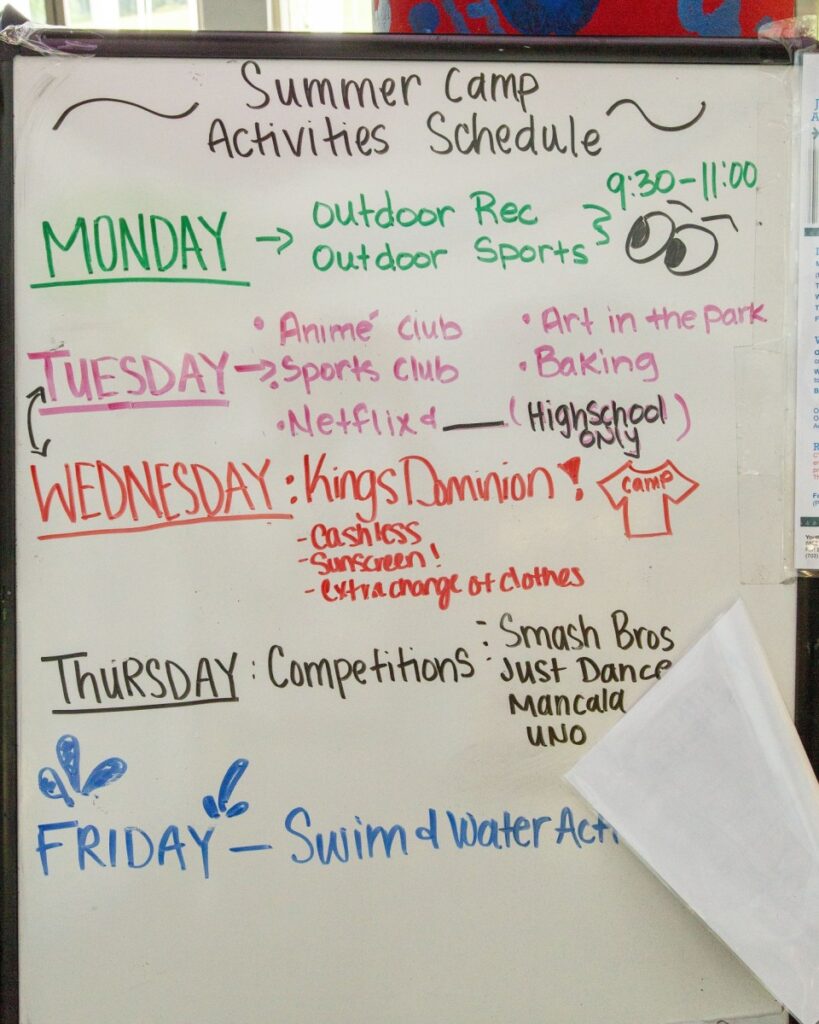 Summer Camp
Activities Schedule
9:30-11:00
MONDAY → Outdoor Rec
Outdoor Sports
• Animé club • Art in the park
TUESDAY → • Sports club • Baking
• Netflix & ___ (Highschool ONLY)
WEDNESDAY : Kings Dominion!
camp
- Cashless
- Sunscreen!
- extra change of clothes
THURSDAY : Competitions : Smash Bros
Just Dance
Mancala
UNO
FRIDAY - Swim & Water Acti